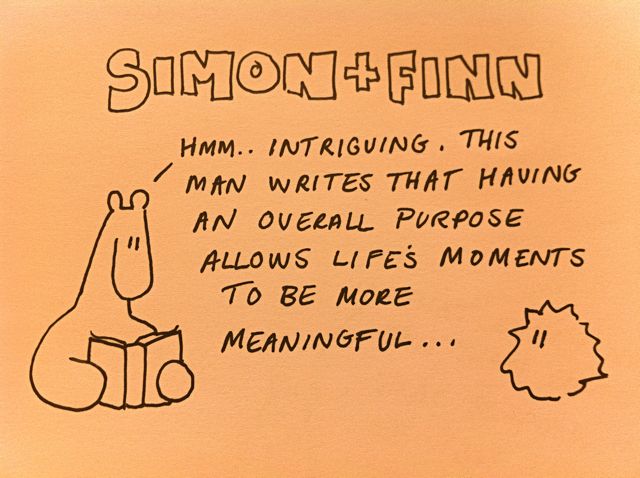 SIMON + FINN
HMM.. INTRIGUING. THIS
MAN WRITES THAT HAVING
AN OVERALL PURPOSE
ALLOWS LIFE'S MOMENTS
TO BE MORE
MEANINGFUL...